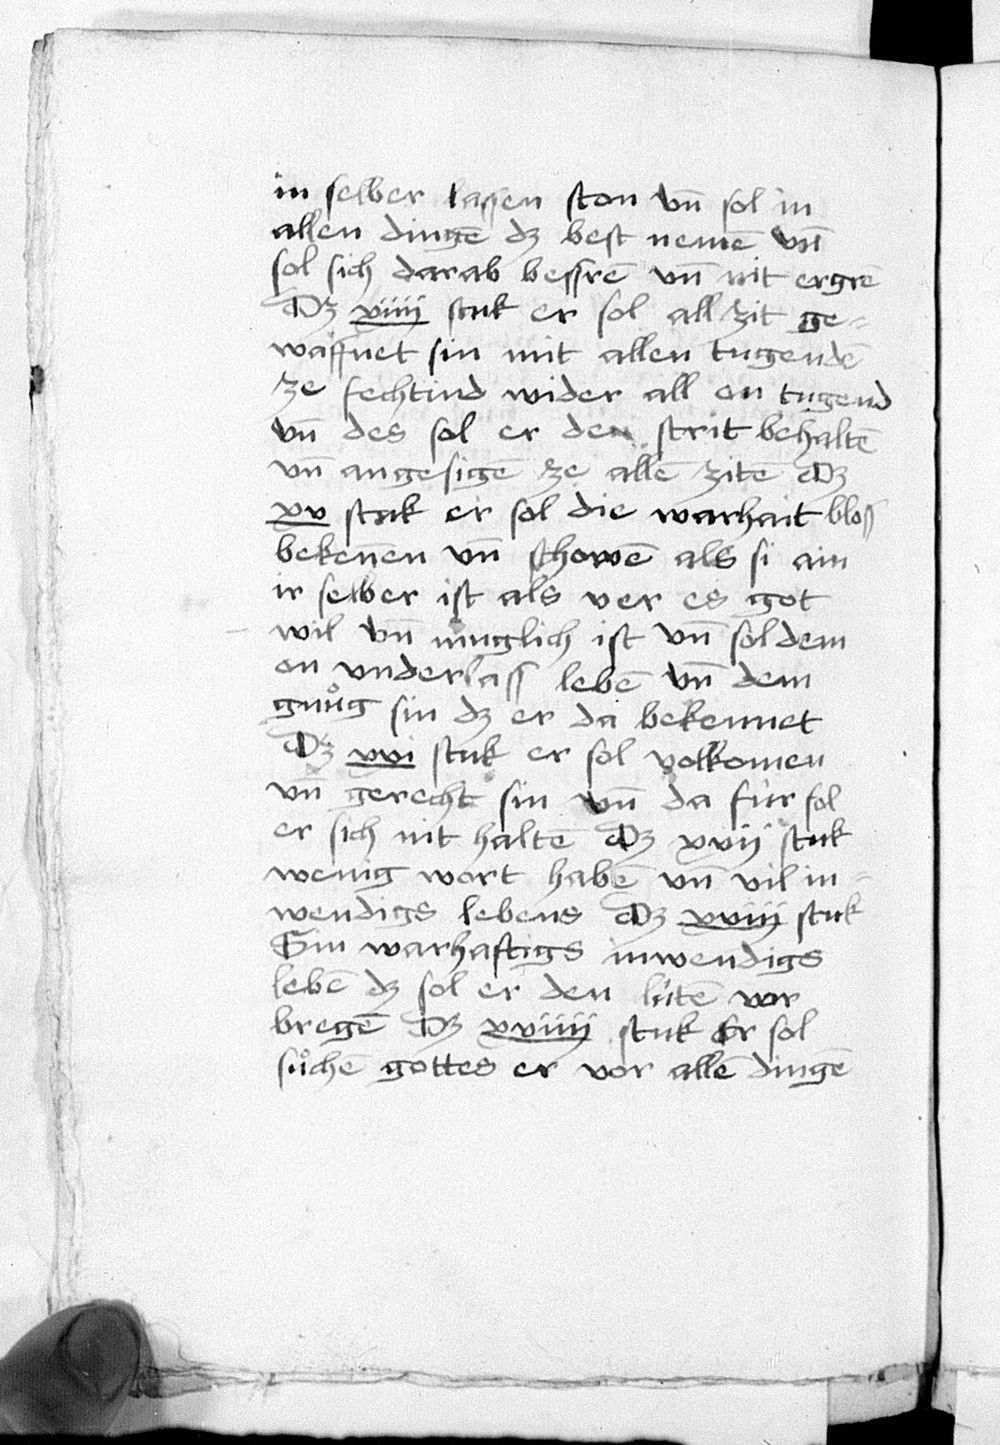 in selber lassen ston vn̄ sol in
allen dingē dʒ best nemē vn̄
sol sich darab bessrē vn̄ nit ergrē
Dʒ xiiij stuk er sol all zit ge-
waffnet sin mit allen tugendē
ze fechtind wider all on tugend
vn̄ des sol er den strit behaltē
vn̄ angesigē ze allē zitē Dʒ
xv stuk er sol die warhait bloss
bekenēn vn̄ schowē als si ain
ir selber ist als ver es got
wil vn̄ muglich ist vn̄ sol dem
on vnderlass lebē vn̄ dem
gnůg sin dʒ er da bekennet
Dʒ xvi stuk er sol volkomen
vn̄ gerecht sin vn̄ da für sol
er sich nit haltē Dʒ xvij stuk
wenig wort habē vn̄ vil in-
wendigs lebens Dʒ xviij stuk
Sin warhaftigs inwendigs
lebē dʒ sol er den lütē vor
bregē Dʒ xviiij stuk Er sol
sůchē gottes er vor allē dingē